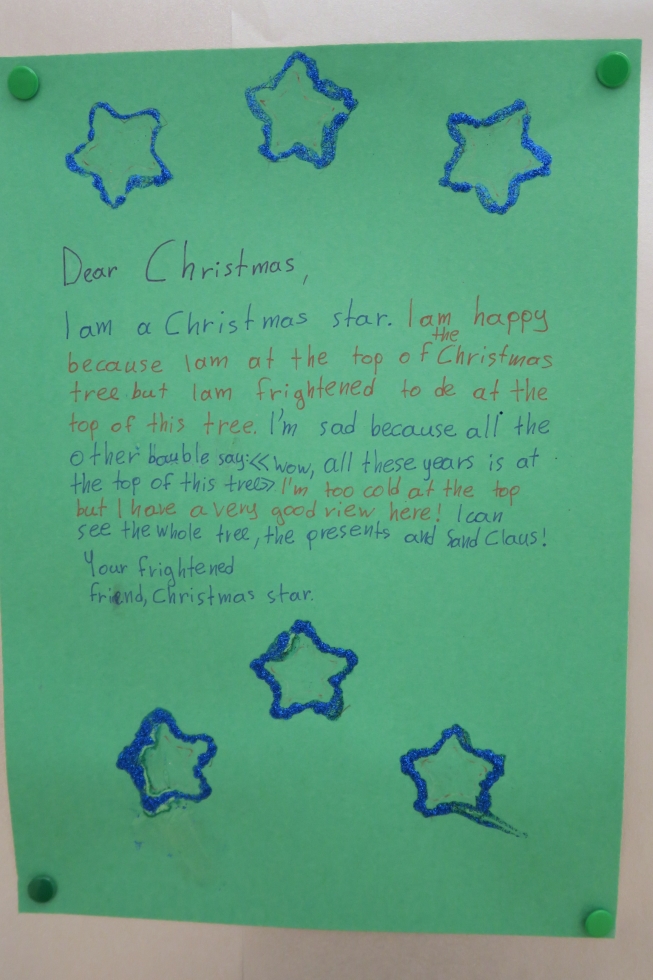 Dear Christmas,
I am a Christmas star. I am happy
the
because I am at the top of Christmas
tree but I am frightened to de at the
top of this tree. I'm sad because all the
other bauble say:≪Wow, all these years is at
the top of this tree≫ I'm too cold at the top
but I have a very good view here! I can
see the whole tree, the presents and Sand Claus!
Your frightened
friend, Christmas star.